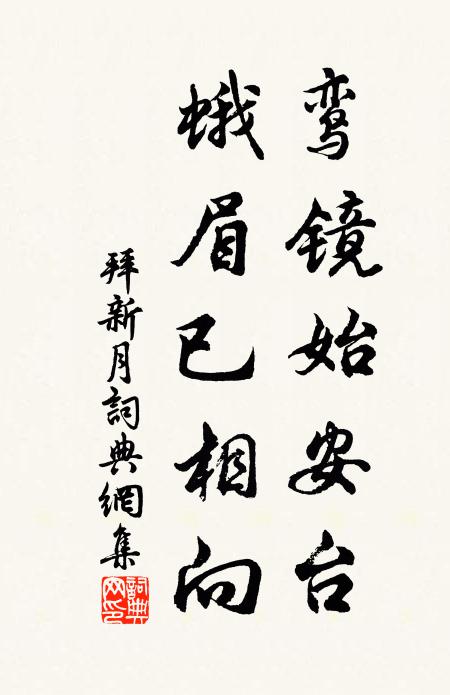 鸾镜始安台
蛾眉已相向
拜新月詞典網集
詞典网印